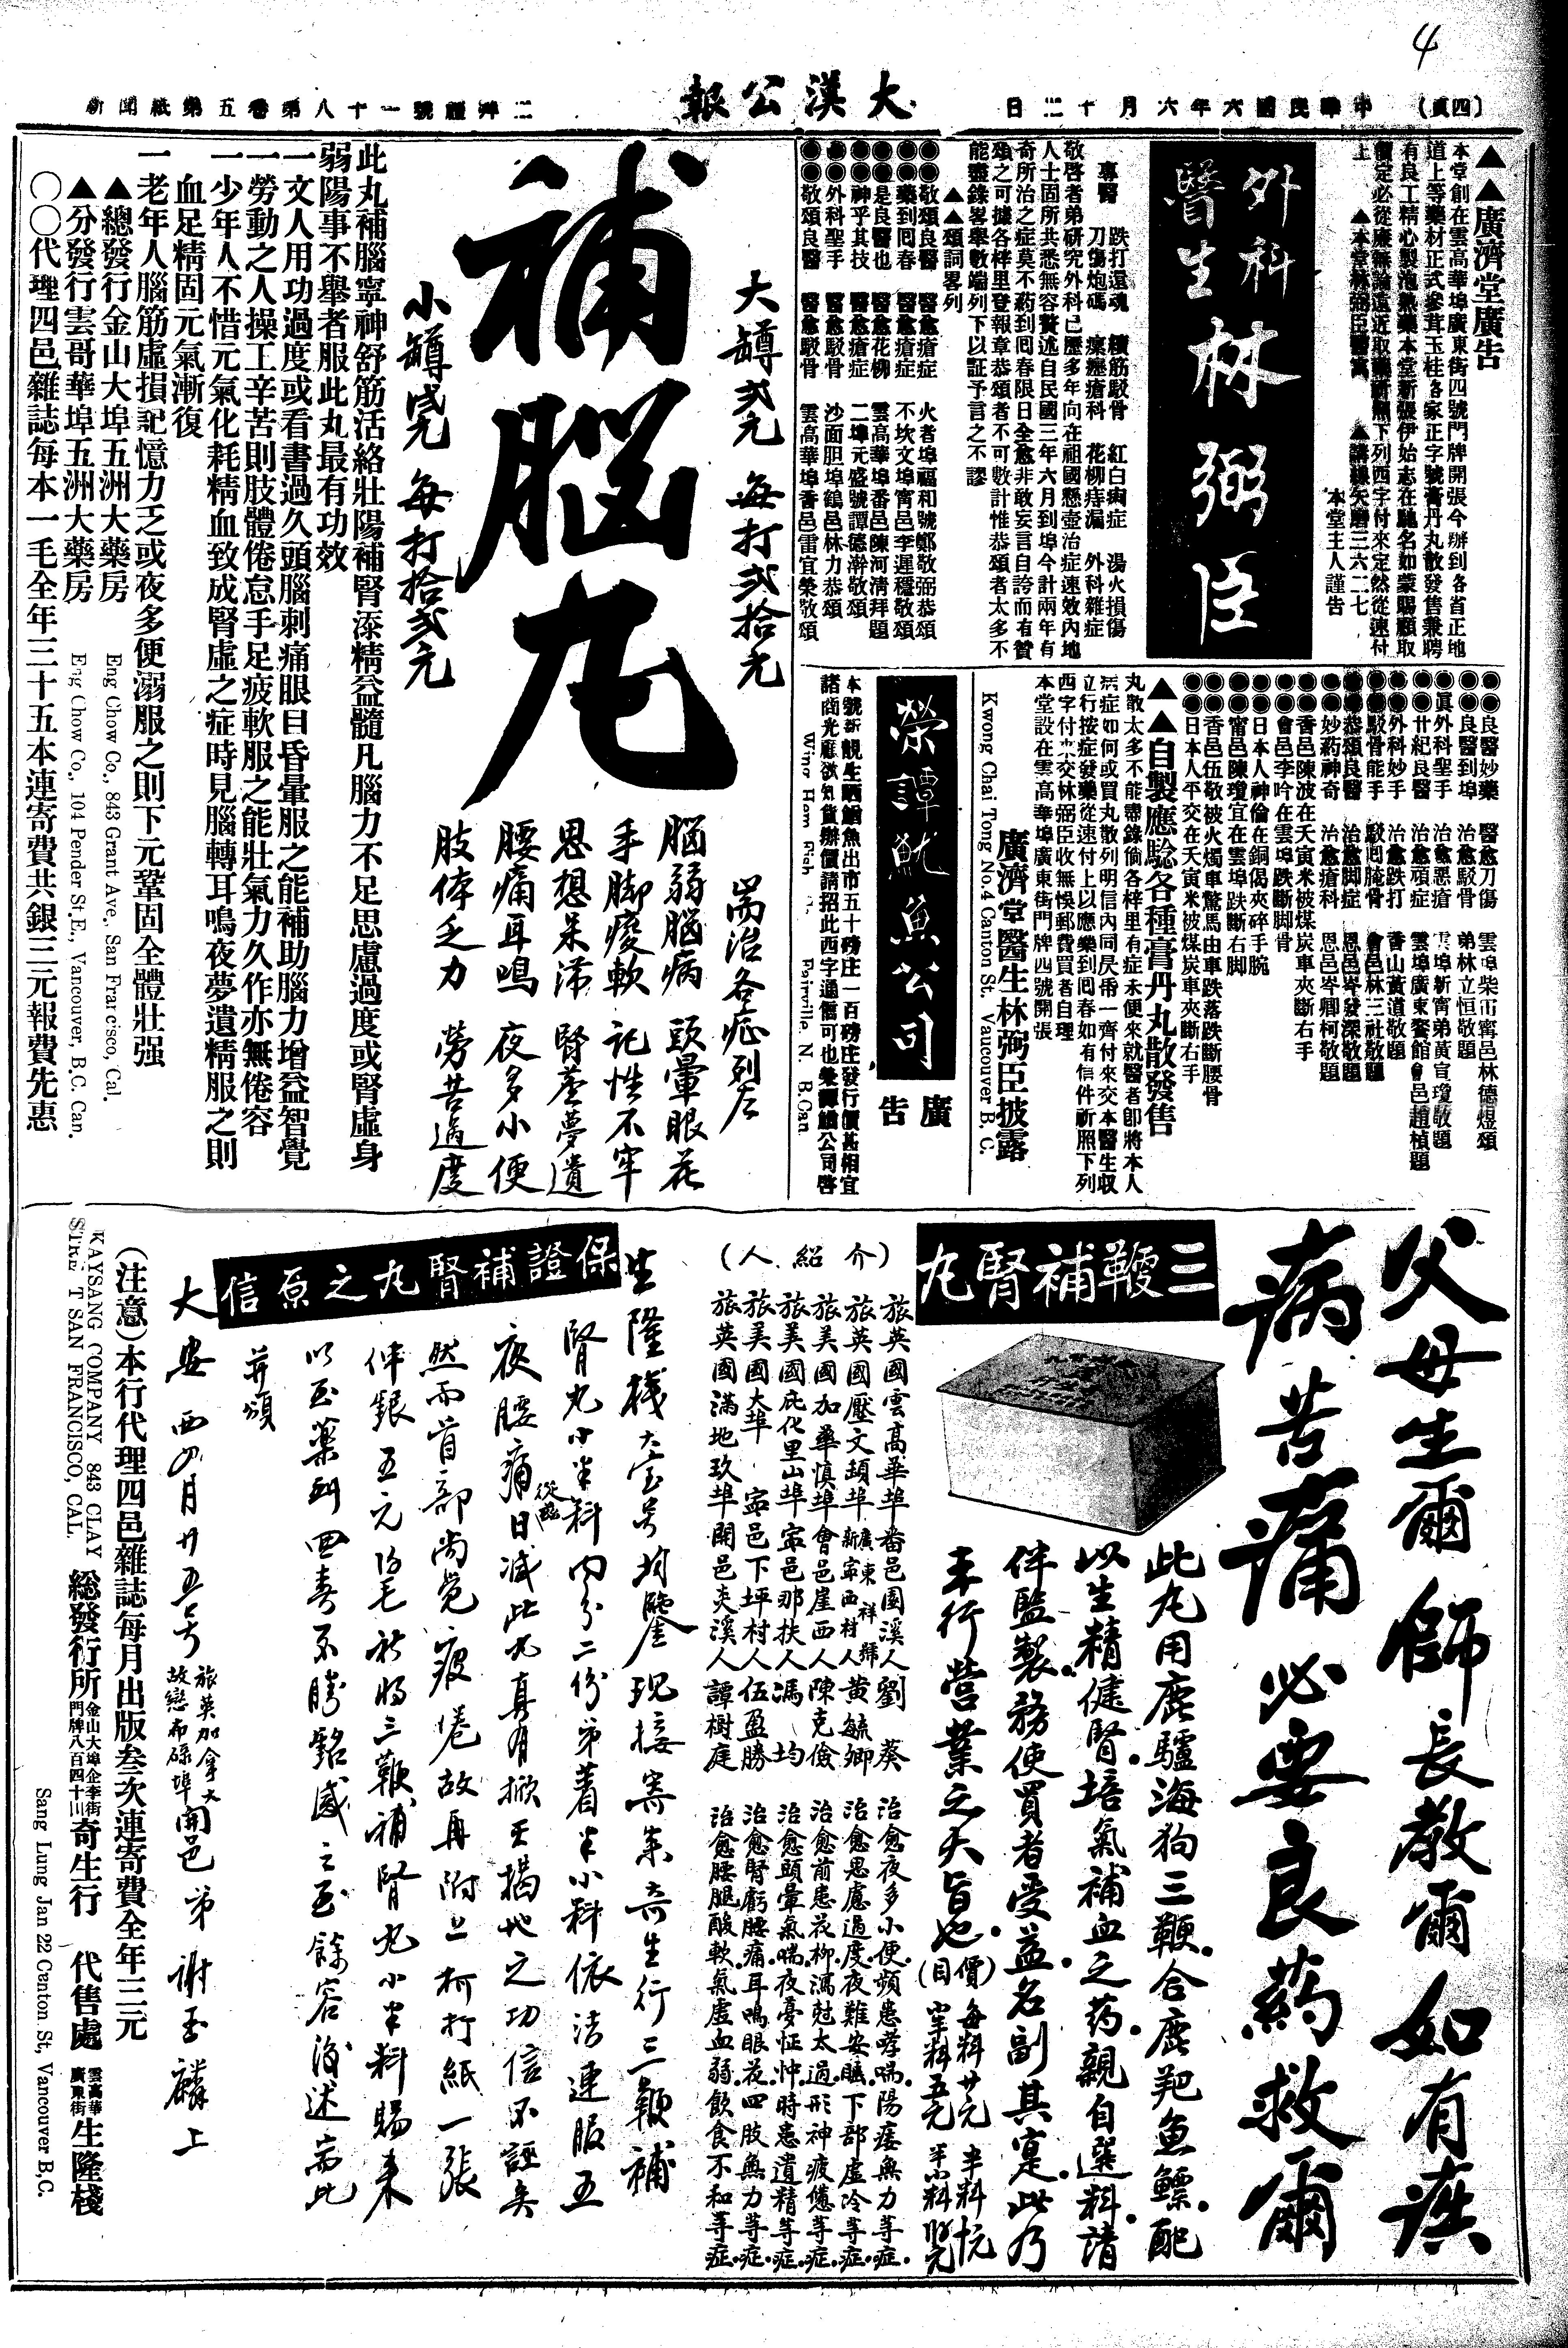 4
(四頁)
中華民國六年六月十二日
大漢公報
二拜禮號一十八第卷五第紙聞新
▲▲廣濟堂廣告
本堂創在雲高華埠廣東街四號門牌開張今辦到各省正地
道上等藥材正式參茸玉桂各家正字號膏丹丸散發售兼聘
有良工精心製泡熟藥本堂新張伊始志在馳名如蒙賜顧取
價定必從廉無論遠近取藥祈照下列西字付來定然從速付
上 ▲本堂林弼臣醫寓
本堂主人謹告
外科
醫生
林弼臣
專醫
跌打還魂 續筋駁骨 紅白痢症 湯火損傷
刀傷炮碼 瘰癧瘡科 花柳痔漏 外科雜症
敬啓者弟研究外科已歷多年向在祖國懸壺治症速效內地
人士固所共悉無容贅述自民國三年六月到埠今計兩年有
奇所治之症莫不葯到囘春限日全愈非敢妄言自誇而有贊
頌之可據各梓里登報章恭頌者不可數計惟恭頌者太多不
能盡錄畧舉數端列下以証予言之不謬
▲▲頌詞畧列
◉◉敬頌良醫 醫愈瘡症 火者埠福和號鄭敬弼恭頌
◉◉藥到囘春 醫愈瘡症 不坎文埠甯邑李遲穩敬頌
◉◉是良醫也 醫愈花柳 雲高華埠番邑陳河清拜題
◉◉神乎其技 醫愈瘡症 二埠元盛號譚德澣敬頌
◉◉外科聖手 醫愈駁骨 沙面胆埠鶴邑林力恭頌
◉◉敬頌良醫 醫愈駁骨 雲高華埠香邑雷宜榮敬頌
◉◉良醫妙藥 醫愈刀傷 雲埠柴市甯邑林德煜頌
◉◉良醫到埠 治愈駁骨 弟林立恒敬題
◉◉眞外科聖手 治愈惡瘡 雲埠新甯弟黃宣瓊敬題
◉◉廿紀良醫 治愈頑症 雲埠廣東醫館會邑趙楨題
◉◉外科妙手 治愈跌打 香山黃道敬題
◉◉駁骨能手 駁囘腌骨 會邑林三社敬題
◉◉恭頌良醫 治愈脚症 恩邑岑發深敬題
◉◉妙葯神奇 治愈瘡科 恩邑岑卿柯敬題
◉◉香邑陳波在天寅米被煤炭車夾斷右手
◉◉會邑李吟在雲埠跌斷脚骨
◉◉日本人神倫在銅偈夾碎手腕
◉◉甯邑陳瓊宜在雲埠跌斷右脚
◉◉香邑伍敬被火燭車驚馬由車跌落跌斷腰骨
◉◉日本人平交在天寅米被煤炭車夾斷右手
▲▲自製應騐各種膏丹丸散發售
丸散太多不能盡錄倘各梓里有症未便來就醫者卽將本人
病症如何或買丸散列明信內同艮帋一齊付來交本醫生収
立行按症發藥從速付上以應藥到囘春如有信件祈照下列
西字付來交林弼臣收無悞郵費買者自理
本堂設在雲高華埠廣東街門牌四號開張
廣濟堂醫生林弼臣披露
Kwong Chai Tong No.4 Canton St. Vaucouver B. C.
榮譚魷魚公司
廣告
本號新 鯇生晒鱔魚出市五十磅庄一百磅庄發行價甚相宜
諸商光應欲知貨辦價請招此西字通信可也榮譚鱔公司啓
Wing Hem Fish Fairville, N. B.Can.
補腦丸
大罇弍元 每打弍拾元
小罇毫元 每打拾弍元
耑治各症列左
腦弱腦病 頭暈眼花
手脚痠軟 記性不牢
思想呆滞 腎虛夢遺
腰痛耳鳴 夜多小便
肢体乏力 勞苦過度
此丸補腦寧神舒筋活絡壯陽補腎添精益髓凡腦力不足思慮過度或腎虛身
弱陽事不舉者服此丸最有功效
一文人用功過度或看書過久頭腦刺痛眼目昏暈服之能補助腦力增益智覺
一勞動之人操工辛苦則肢體倦怠手足疲軟服之能壯氣力久作亦無倦容
一少年人不惜元氣化耗精血致成腎虛之症時見腦轉耳鳴夜夢遺精服之則
血足精固元氣漸復
一老年人腦筋虛損記憶力乏或夜多便溺服之則下元鞏固全體壯强
▲總發行金山大埠五洲大藥房
Eng Chow Co., 843 Grant Ave., San Francisco, Cal.
▲分發行雲哥華埠五洲大藥房
Eng Chow Co., 104 Pender St E., Vancouver, B.C. Can.
〇〇代理四邑雜誌每本一毛全年三十五本連寄費共銀三元報費先惠
父母生爾 師長教爾 如有疾
病苦痛 必要良葯救爾
三鞭補腎丸
此丸用鹿驢海狗三鞭合鹿羓魚鰾配
以生精健腎培氣補血之葯親自選料請
伴監製務使買者受益名副其寔此乃
本行營業之大旨也
(價目) 每料廿元 半料拾元
(介紹人)
旅英國雲高華埠番邑園溪人劉葵 治愈夜多小便頻患哮喘陽痿無力等症
旅英國壓文頓埠廣東祥號新寧西村人黃毓卿 治愈思慮過度夜難安睡下部虛冷等症
旅美國加華慎埠會邑崖西人陳克儉 治愈前患花柳瀉尅太過形神疲倦等症
旅美國庇化里山埠甯邑那扶人馮均 治愈頭暈氣喘夜憂怔忡時患遺精等症
旅美國大埠甯邑下坪村人伍盈勝 治愈腎虧腰痛耳鳴眼花四肢無力等症
旅英國滿地玖埠開邑夹溪人譚樹庭 治愈腰腿酸軟氣虛血弱飲食不和等症
保證補腎丸之原信
生隆棧大宝号均鑒現接寄來奇生行三鞭補
腎丸小半料內分二份弟著半小料依法連服五
夜腰痛從茲日減此丸真有掀天揭地之功信不誣矣
然而首部尚覚疲倦故再附上柯打紙一張
伴銀五元伯毛祈将三鞭補腎丸小半料賜来
以至藥到囬春不勝銘感之至餘容後述耑此
并頌
大安 西四月廿五号 旅英加拿大故戀布碌埠開邑弟謝玉麟上
(注意)本行代理四邑雜誌每月出版叁次連寄費全年三元
KAYSANG COMPANY 843 CLAY
STREET SAN FRANCISCO, CAL.
総發衍所 金山大埠企李街門牌八百四十三 奇生行 代售處 雲高華廣東街 生隆棧
Sang Lung Jan 22 Canton St, Vancouver B,C.